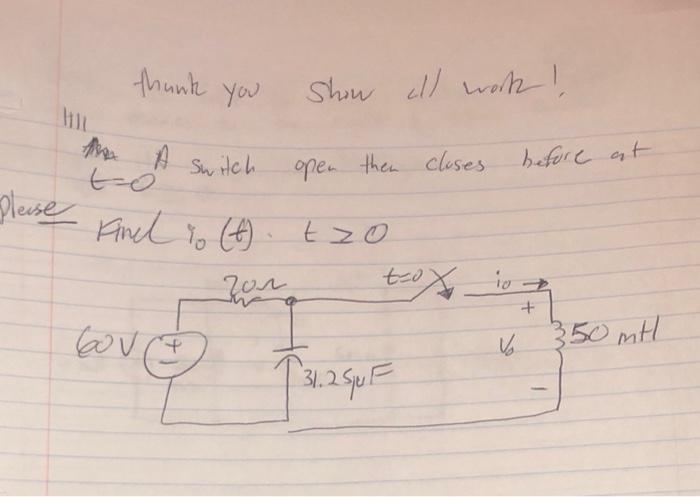 thank you show all work!
A switch open then closes before at
t=0
Please Find io (t). t ≥ 0
20Ω
t=0
io
60V
+
-
31.25μF
+
Vo
-
50 mH